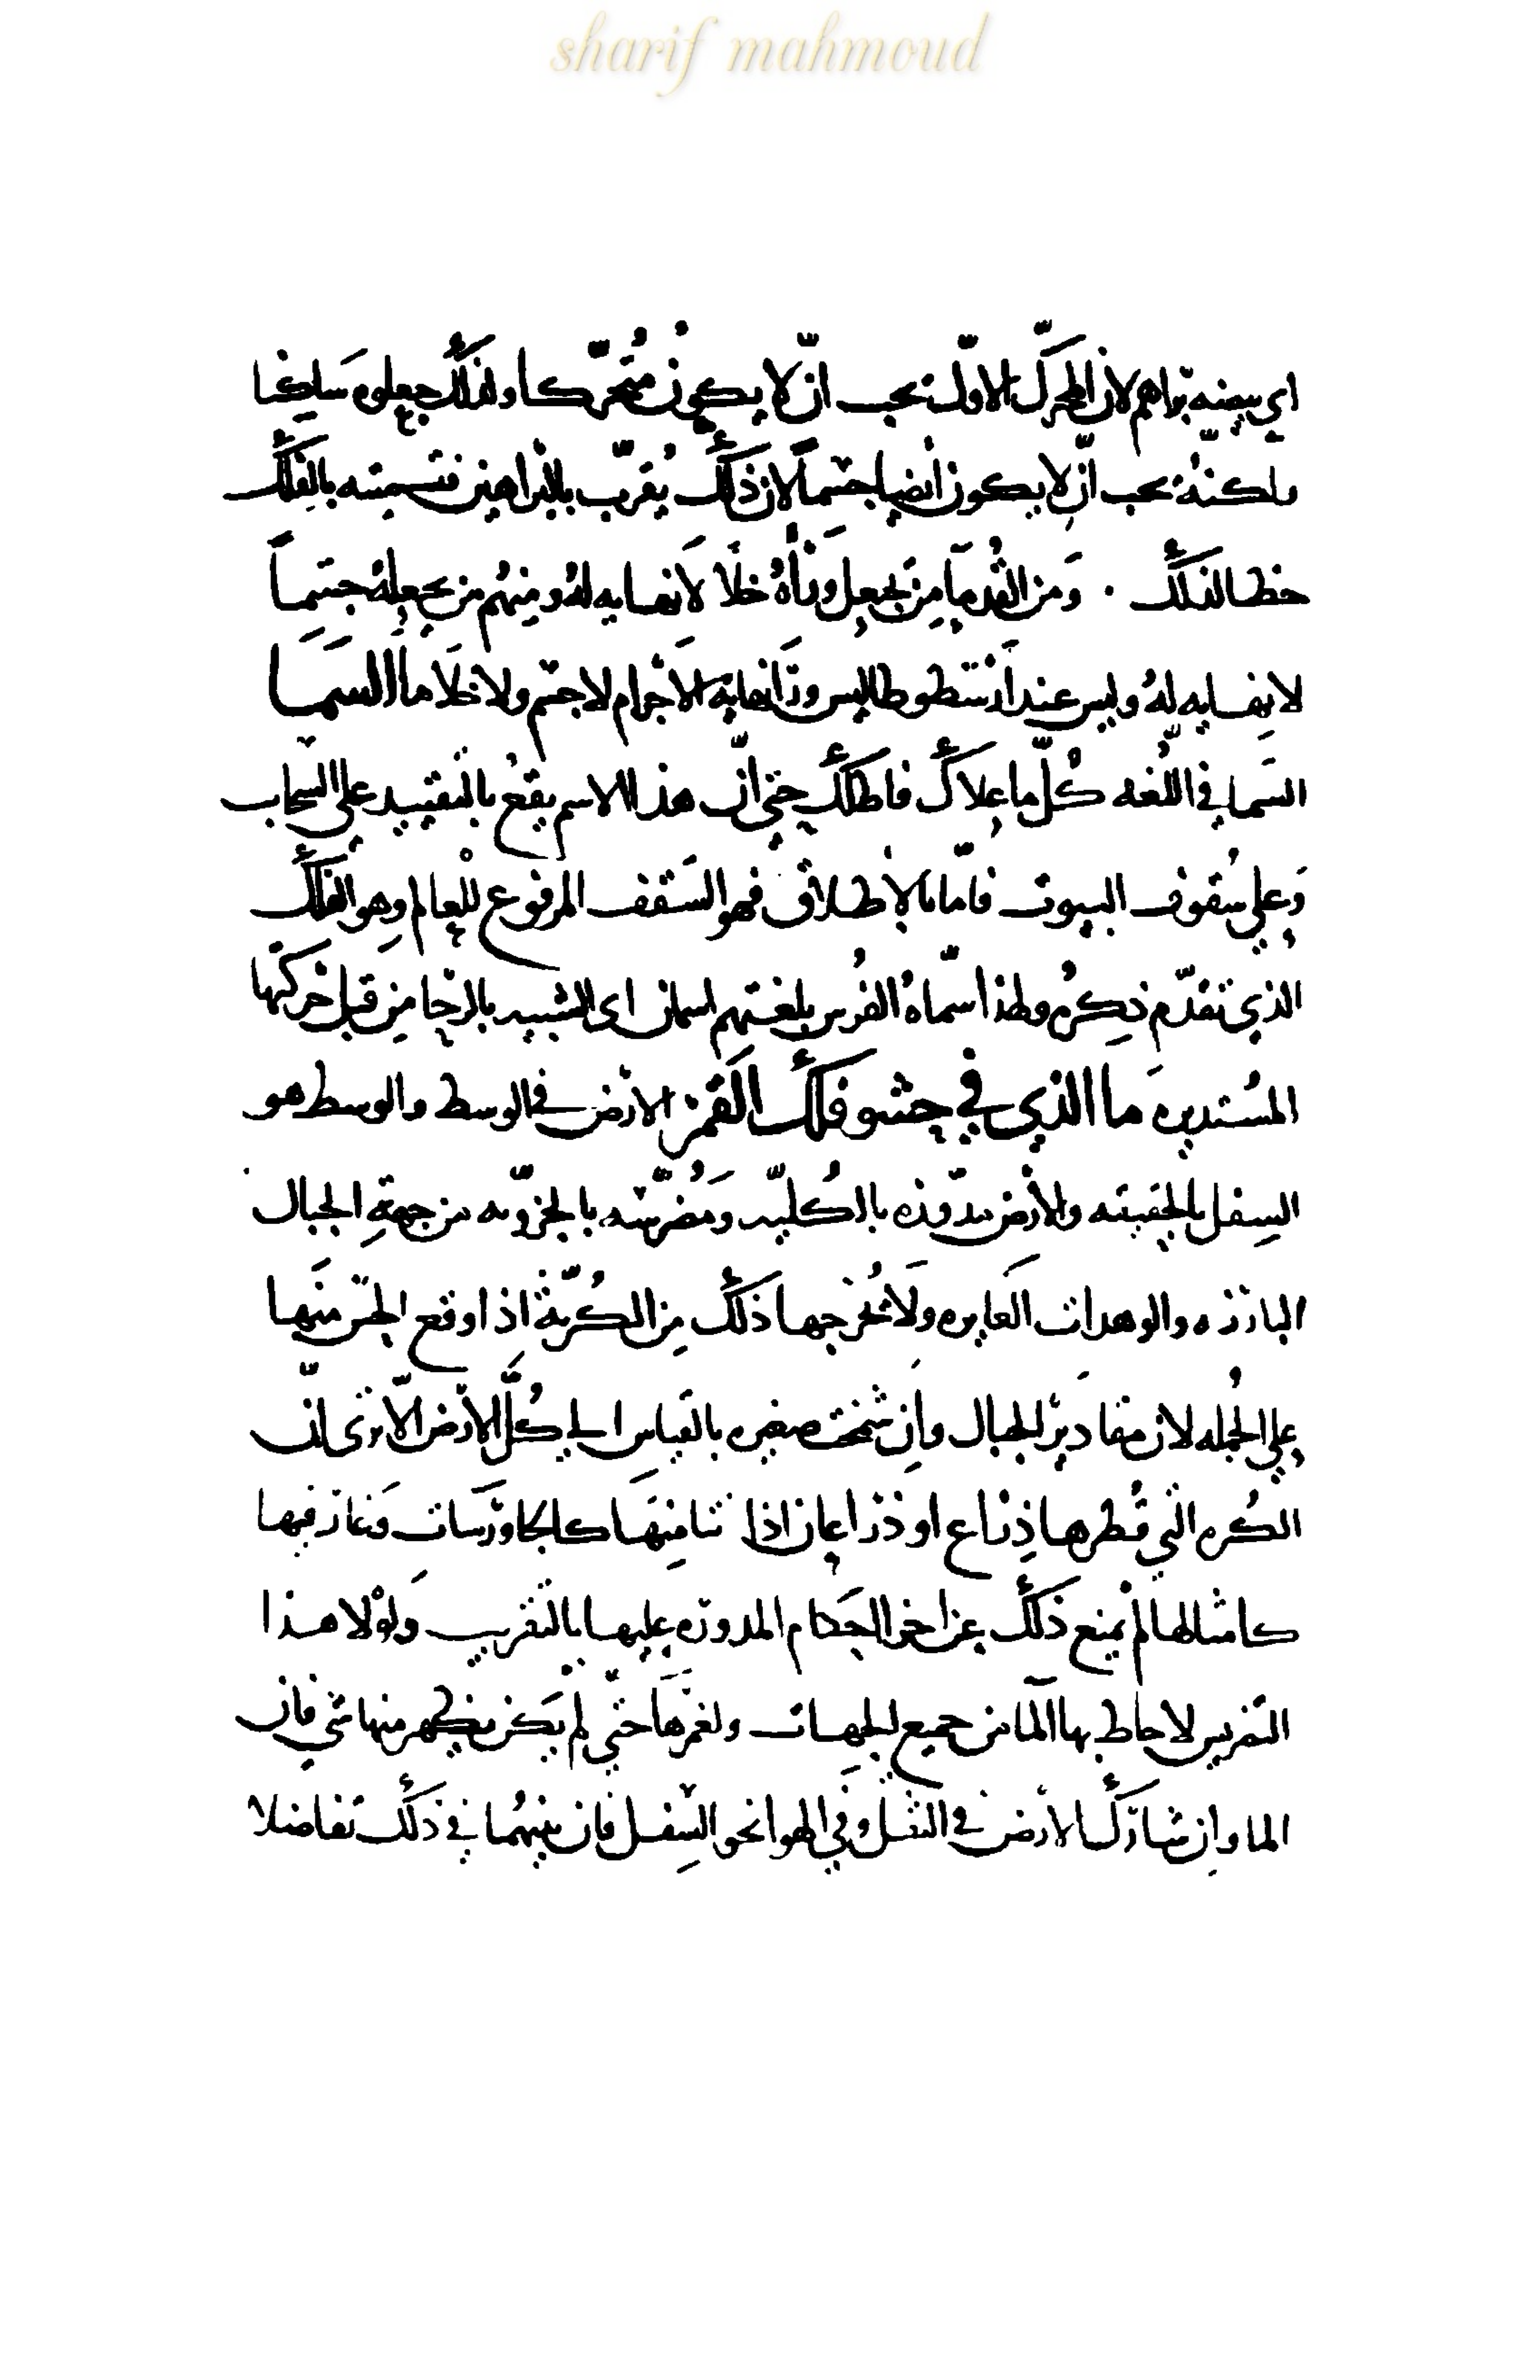 sharif mahmoud
اي بيضة براهم لان المحرّك الاوّل يجب انّ لا يكون مُتحرّكا ولذلك جعلوه ساكنا
ولكنّهُ يجب انّ لا يكون ايضا جسماً لان ذلك يُقرّب بالبراهين فتسميته بالفلك
خطا لذلك . وَمن القُدمآ مِنَ يجعل وراهُ خلَاَ لاَ نهايه لهُ ومنهُم من يجعلهُ جسماً
لا نِهايه لهُ وليس عند اَرسطوطاليس ورَا نهاية الاَجرام لا جسم ولا خلَا ما السَمَا
السَما في اللُّغه كُلّ ما علاكَ فاظلكَ حتي انّ هذا الاسم يقعُ بالتقييد علي السحاب
وَعلي سُقوف البيوت فامّا بالاِطلاق فهو السَقف المرفوع للْعالم وهو الفلك
الذي تقدّم ذِكرُه ولهذا سمّاهُ الفُرس بلغتهم اسمان اى الشبيه بالرحا مِن قبل حَركتها
المسُتديره ما الذي في حشو فلك القَمَر الارَض في الوسط والوسط هو
السِفل بالحقيقه والاَرض مدوّره بالكُليّه ومَُضرّسه بالجزويّه من جهةِ الجبال
البارزه والوهدات الغَايره ولَا يُخرجها ذَلك مِن الكُريّة اذا وقع الحسّ منَها
علي الجُمله لان مقاديرَ الجبال وانِ شمخت صغيره بالقياسِ الي كُلّ الاَرض الّا ترى انّ
الكُره التي قُطرها ذِراع او ذراعان اذا نتا مِنهَا كالجاورسَات وَغار فيها
كامثالها لمْ يمنع ذَلك عن اجراَ احكام المدوره عليها بالتقريب وَلوْلا هذا
التضريس لاحاط بها المآ من جميع الجهات ولغمرهَا حتّي لم يكَن يظهر منها شي فان
الما وانِ شاركَ الاَرض في الثقل وفي الهوا نحو السِفل فان بينهُما في ذلك تفاضلا